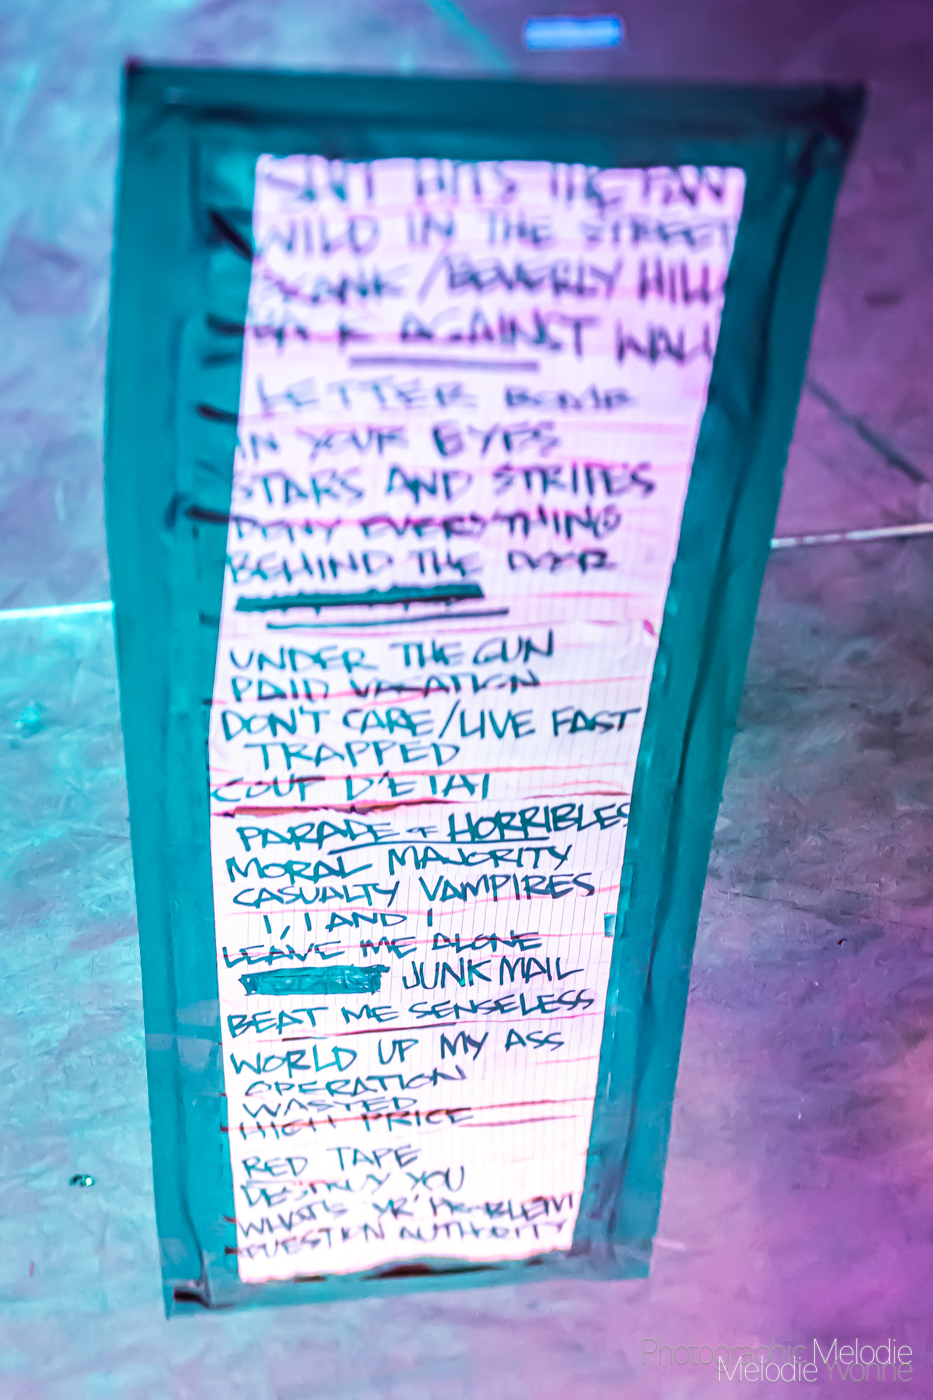 SHIT HITS THE FAN
WILD IN THE STREET
SKANK/BEVERLY HILL
BACK AGAINST WALL
LETTER BOMB
IN YOUR EYES
STARS AND STRIPES
DENY EVERYTHING
BEHIND THE DOOR
UNDER THE GUN
PAID VACATION
DON'T CARE/LIVE FAST
TRAPPED
COUP D'ETAT
PARADE OF HORRIBLES
MORAL MAJORITY
CASUALTY VAMPIRES
I, I AND I
LEAVE ME ALONE
JUNK MAIL
BEAT ME SENSELESS
WORLD UP MY ASS
OPERATION
WASTED
HIGH PRICE
RED TAPE
DESTROY YOU
WHAT'S YR' PROBLEM
QUESTION AUTHORITY
Photographic Melodie
Melodie Yvonne